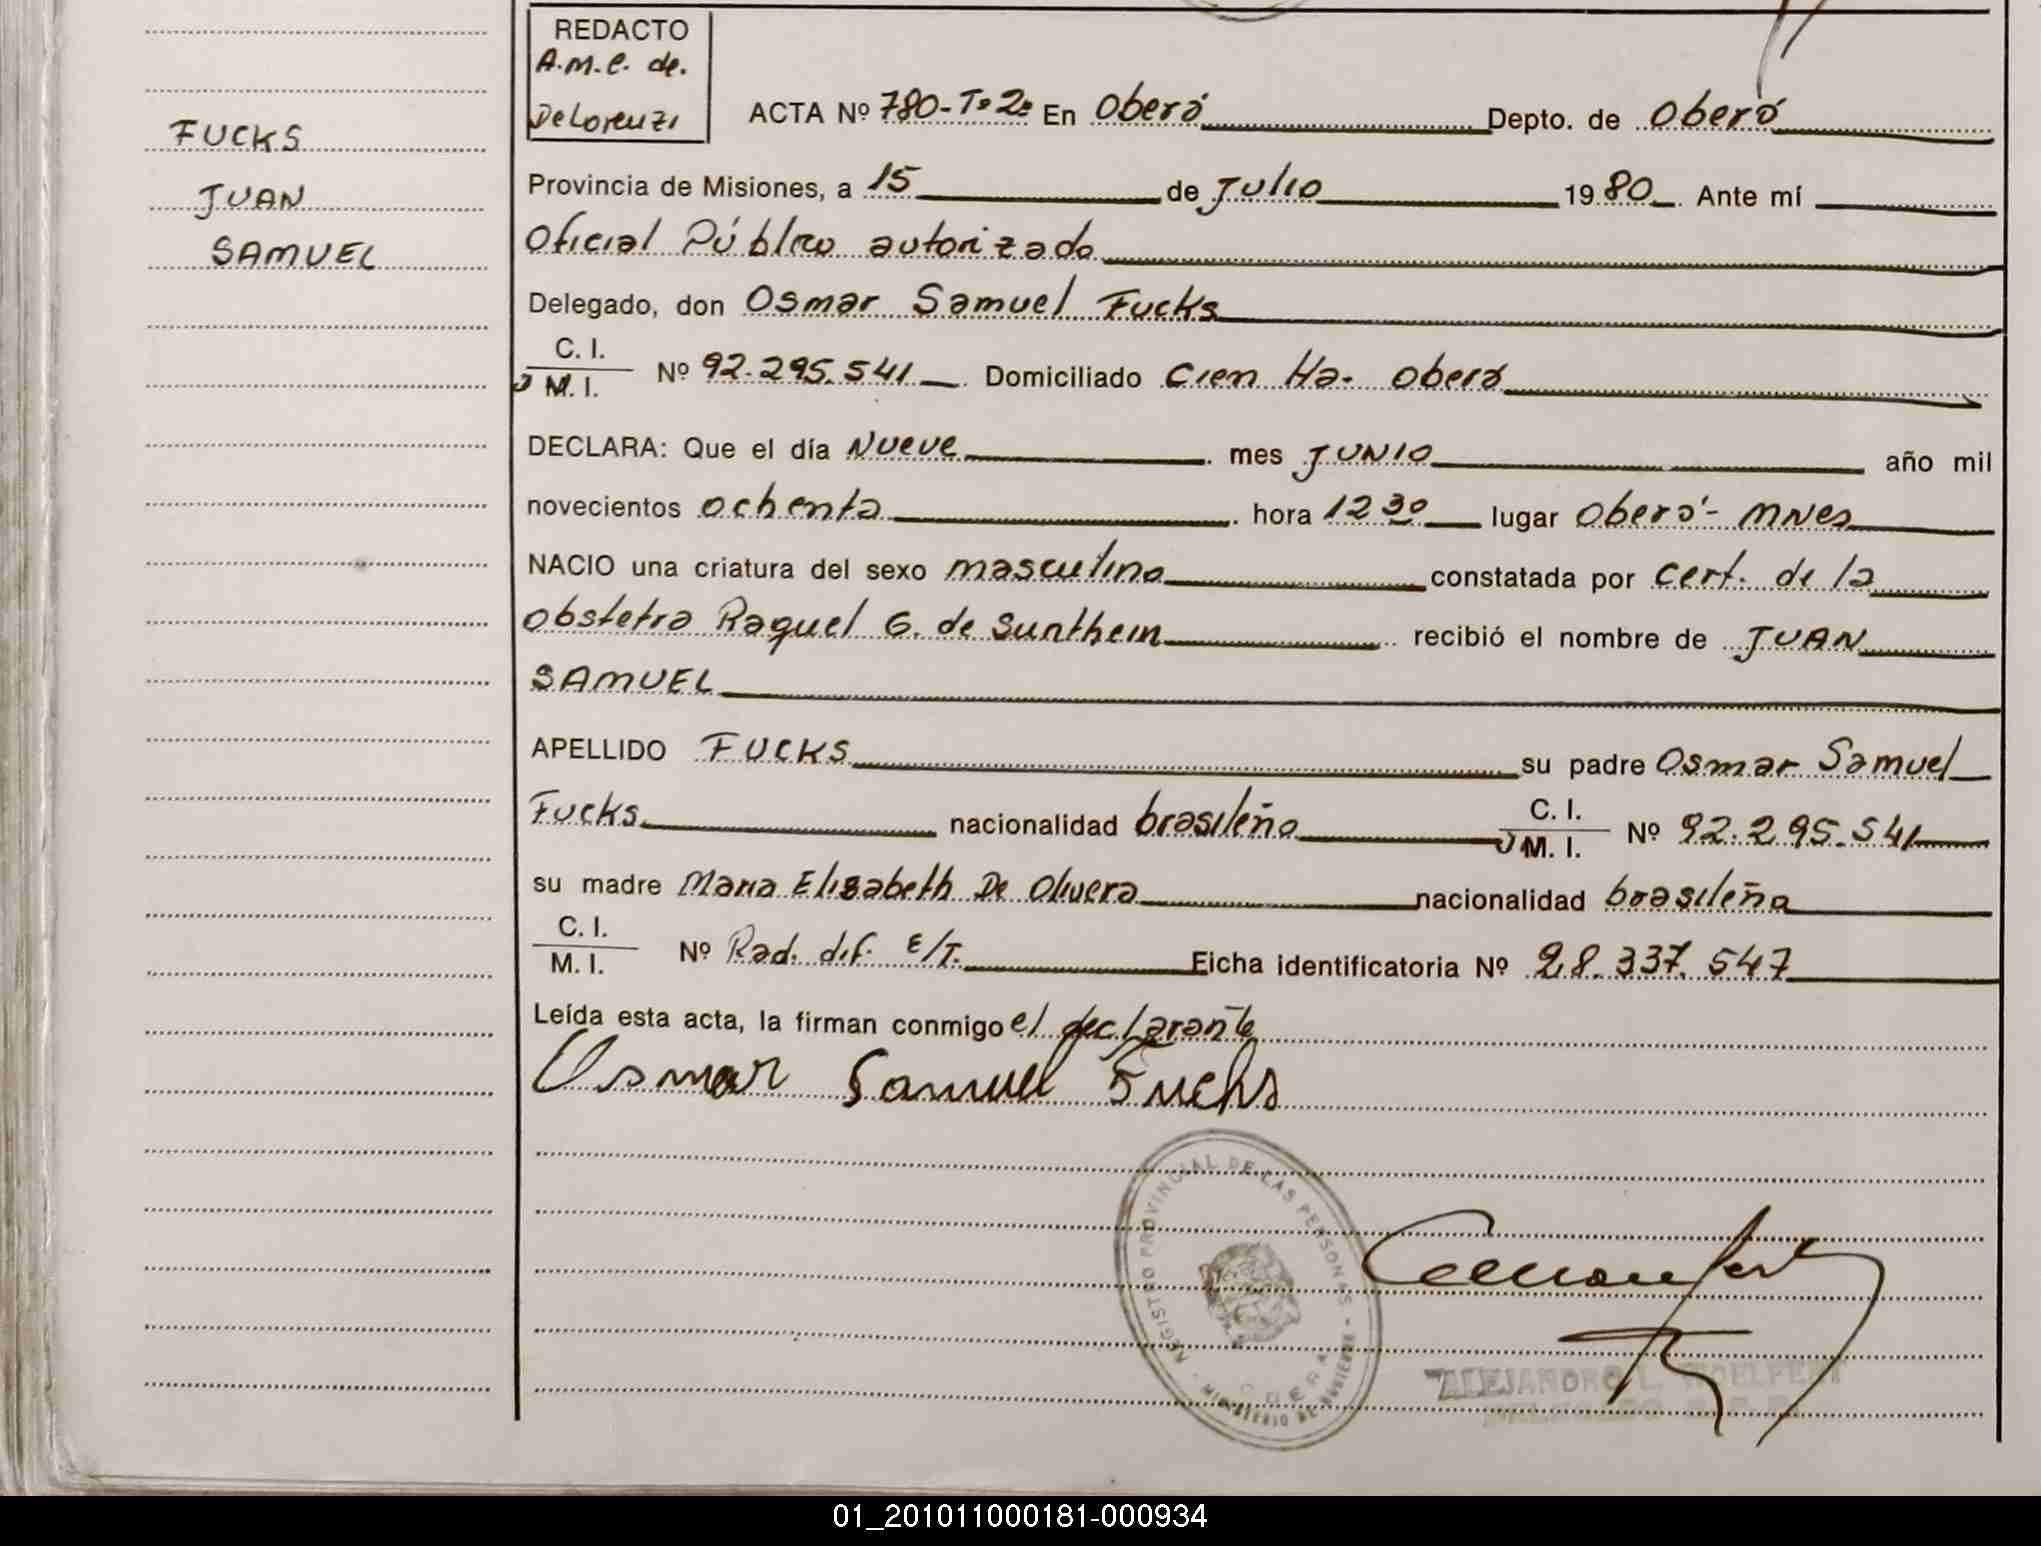 REDACTO
A.M.C. de.
DeLorenzi
FUCKS
JUAN
SAMUEL
ACTA Nº 780-Tº 2º En Oberá Depto. de Oberá
Provincia de Misiones, a 15 de Julio 1980 Ante mí
Oficial Público autorizado
Delegado, don Osmar Samuel Fucks
C. I.
M. I. Nº 92.295.541 Domiciliado Cien Ha. Oberá
DECLARA: Que el día Nueve mes JUNIO año mil
novecientos ochenta hora 12 30 lugar Oberá - Mnes
NACIO una criatura del sexo masculino constatada por cert. de la
obstetra Raquel G. de Sunthem recibió el nombre de JUAN
SAMUEL
APELLIDO FUCKS su padre Osmar Samuel
Fucks nacionalidad brasileña C. I.
M. I. Nº 92.295.541
su madre Maria Elisabeth De Olivera nacionalidad brasileña
C. I.
M. I. Nº Rad. dif. E/T. Ficha identificatoria Nº 28.337.547
Leída esta acta, la firman conmigo el declarante
Osmar Samuel Fuchs
REGISTRO PROVINCIAL DE LAS PERSONAS
OBERA
MINISTERIO DE
ALEJANDRO L. WOELFERT
01_201011000181-000934